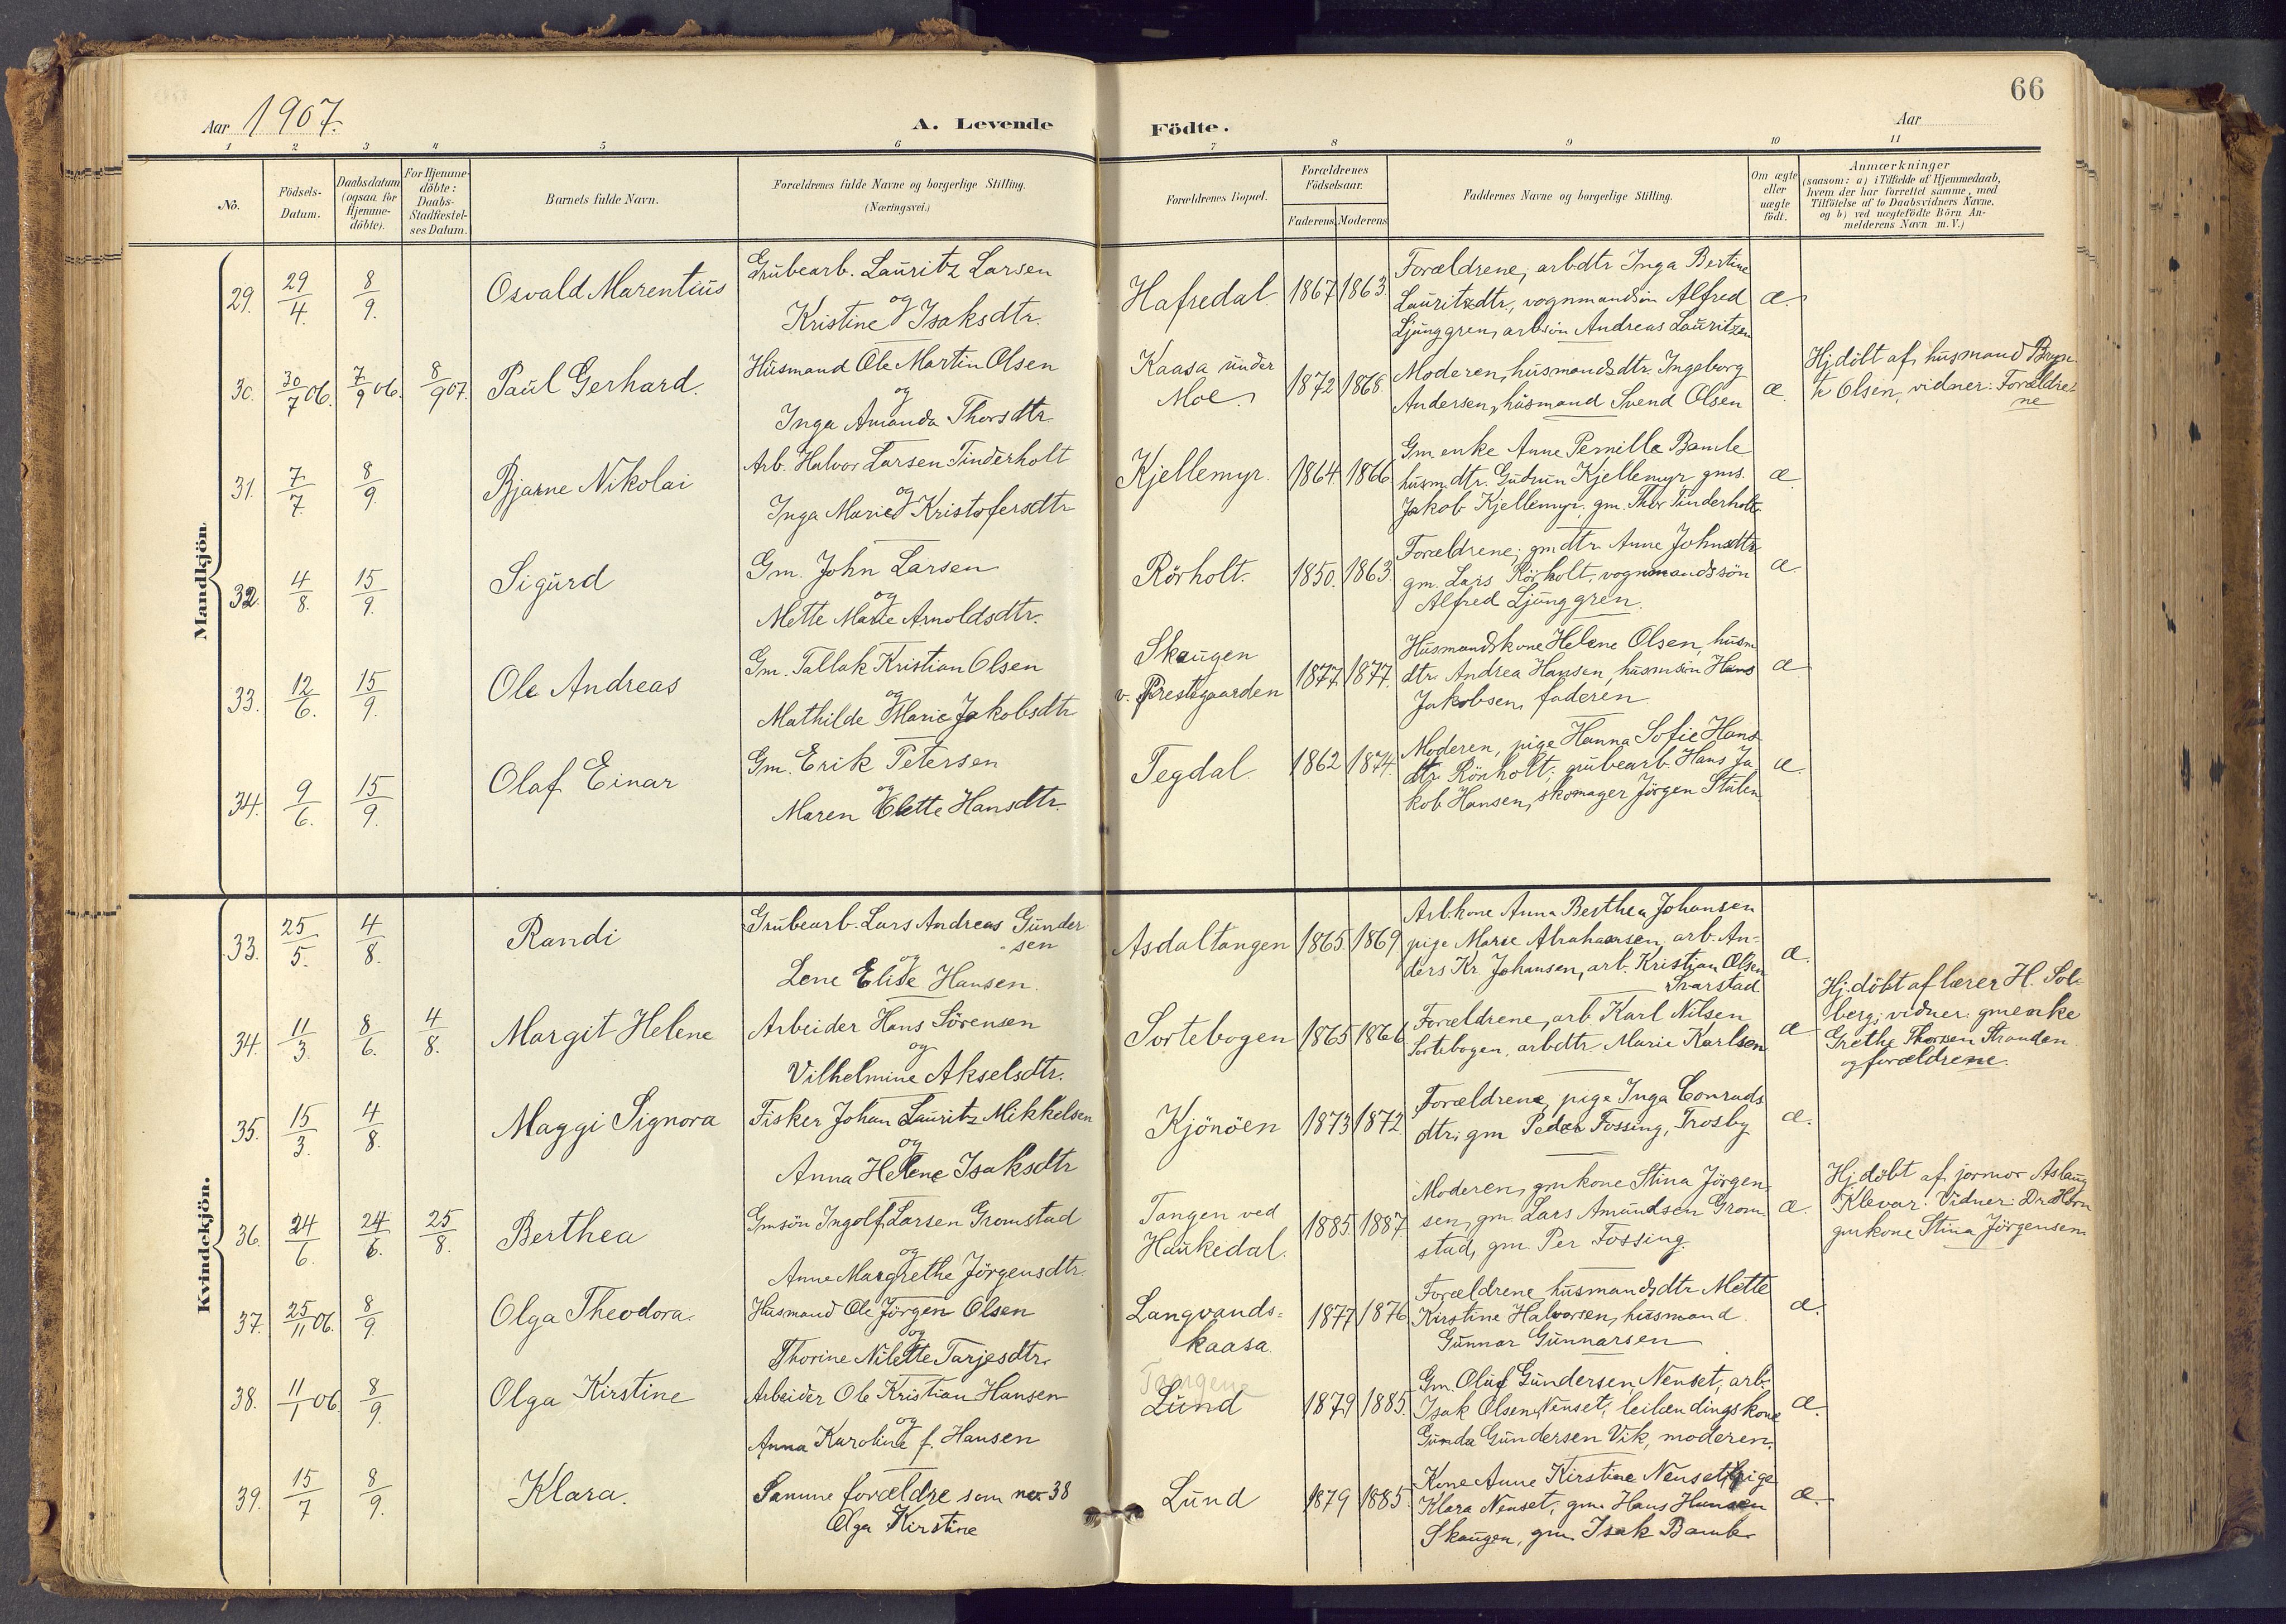 66
Aar 1907.
A. Levende
Födte.
Aar
1 2 3 4 5 6 7 8 9 10 11
No.
Födsels-
Datum.
Daabsdatum
(ogsaa for
Hjemme-
döbte).
For Hjemme-
döbte:
Daabs-
Stadfæstel-
ses Datum.
Barnets fulde Navn.
Forældrenes fulde Navne og borgerlige Stilling.
(Næringsvei.)
Forældrenes Bopæl.
Forældrenes
Födselsaar.
Faderens Moderens
Faddernes Navne og borgerlige Stilling.
Om ægte
eller
uægte
födt.
Anmærkninger
(saasom: a) i Tilfælde af Hjemmedaab,
hvem der har forrettet samme, med
Tilföielse af to Daabsvidners Navne.
og b) ved uægtefödte Börn An-
melderens Navn m. V.)
Mandkjön.
29. 29/4. 8/9. Osvald Marentius
Grubearb. Lauritz Larsen
og
Kristine Isaksdtr.
Hafredal 1867 1863.
Forældrene, arbdtr Inga Bertine
Lauritzdtr, vognmandsön Alfred
Ljunggren, arbsön Andreas Lauritzen
æ.
30. 30/7 06. 7/9 06. 8/9 07. Paul Gerhard.
Husmand Ole Martin Olsen
og
Inga Amanda Thorsdtr
Kaasa under
Moe.
1872 1868.
Moderen, husmandsdtr. Ingeborg
Andersen, husmand Svend Olsen
æ.
Hj.döbt af husmand
Olsen, vidner: Forældre-
ne
31. 7/7. 8/9. Bjarne Nikolai
Arb. Halvor Larsen Tinderholt
og
Inga Marie Kristofersdtr
Kjellemyr. 1864 1866
Gm enke Anne Pernille Bamle
husm.dtr. Gudrun Kjellemyr gms.
Jakob Kjellemyr, gm. Thor Tinderholt.
æ.
32. 4/8. 15/9. Sigurd
Gm. John Larsen
og
Mette Marie Arnoldsdtr.
Rörholt. 1850. 1863.
Forældrene; gmdtr Anne Johnsdtr
gm. Lars Rörholt, vognmandssön
Alfred Ljunggren.
æ.
33. 12/6. 15/9. Ole Andreas
Gm. Tallak Kristian Olsen
og
Mathilde Marie Jakobsdtr
Skaugen
v. Prestegaarden
1877. 1877.
Husmandskone Helene Olsen, husm
dtr. Andrea Hansen, husmsön Hans
Jakobsen, faderen
æ.
34. 9/6. 15/9. Olaf Einar
Gm. Erik Petersen
og
Maren Elette Hansdtr.
Tegdal. 1862 1874.
Moderen, pige Hanna Sofie Hans
dtr Rörholt; grubearb. Hans Ja
kob Hansen, skomager Jörgen Stulen
æ.
Kvindekjön.
33. 25/5. 4/8. Randi
Grubearb. Lars Andreas Gunder
-sen
og
Lene Elise Hansen.
Asdaltangen 1865. 1869
Arb.kone Anna Berthea Johansen
pige Marie Abrahamsen, arb. An-
ders Kr. Johansen, arb. Kristian Olsen
Svarstad
æ.
34. 11/3. 8/6. 4/8. Margit Helene
Arbeider Hans Sörensen
og
Vilhelmine Akselsdtr.
Sortebogen 1865 1866
Forældrene, arb. Karl Nilsen
Sortebogen, arbdtr. Marie Karlsen
æ
Hj.döbt af lærer H. Sol-
berg; vidner: gmenke
Grethe Thorsen Stranden
og forældrene.
35. 15/3. 4/8. Maggi Signora
Fisker Johan Lauritz Mikkelsen
og
Anna Helene Isaksdtr
Kjönöen 1873 1872.
Forældrene, pige Inga Conrads
dtr; gm Peder Fossing, Trosby
æ.
36. 24/6. 24/6. 25/8. Berthea
Gmsön Ingolf Larsen Gromstad
og
Anne Margrethe Jörgensdtr.
Tangen ved
Haukedal.
1885. 1887.
Moderen, gmkone Stina Jörgen
sen, gm. Lars Amundsen Grom
stad, gm. Per Fossing.
æ.
Hj.döbt af jormor Aslaug
Klevar: Vidner: Dr. Horn
gmkone Stina Jörgensen.
37. 25/11 06. 8/9. Olga Theodora.
Husmand Ole Jörgen Olsen
og
Thorine Nilette Tarjesdtr.
Langvands-
kaasa.
1877 1876
Forældrene, husmandsdtr Mette
Kirstine Halvorsen, husmand
Gunnar Gunnarsen
æ.
38. 11/1 06. 8/9. Olga Kirstine
Arbeider Ole Kristian Hansen
og
Anna Karoline f. Hansen
Lund 1879 1885.
Gm. Oluf Gundersen Nenset, arb.
Isak Olsen Nenset; leilændingskone
Gunda Gundersen Vik, moderen.
æ.
39. 15/7 8/9. Klara.
Samme forældre som no 38
Olga Kirstine
Lund 1879 1885.
Kone Anne Kirstine Nenset, pige
Klara Nenset, gm. Hans Hansen
Skaugen, gm. Isak Bamle
æ.